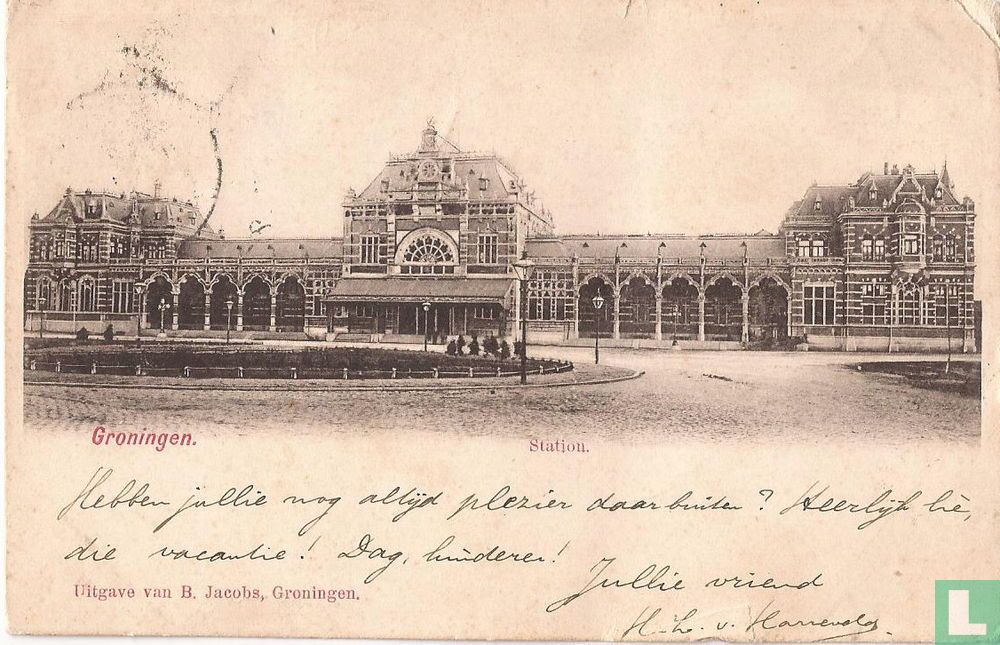 Groningen.
Station.
Hebben jullie nog altijd plezier daarbuiten? Heerlijk hè,
die vacantie! Dag, kinderen!
Jullie vriend
Uitgave van B. Jacobs, Groningen.
H. v.
L